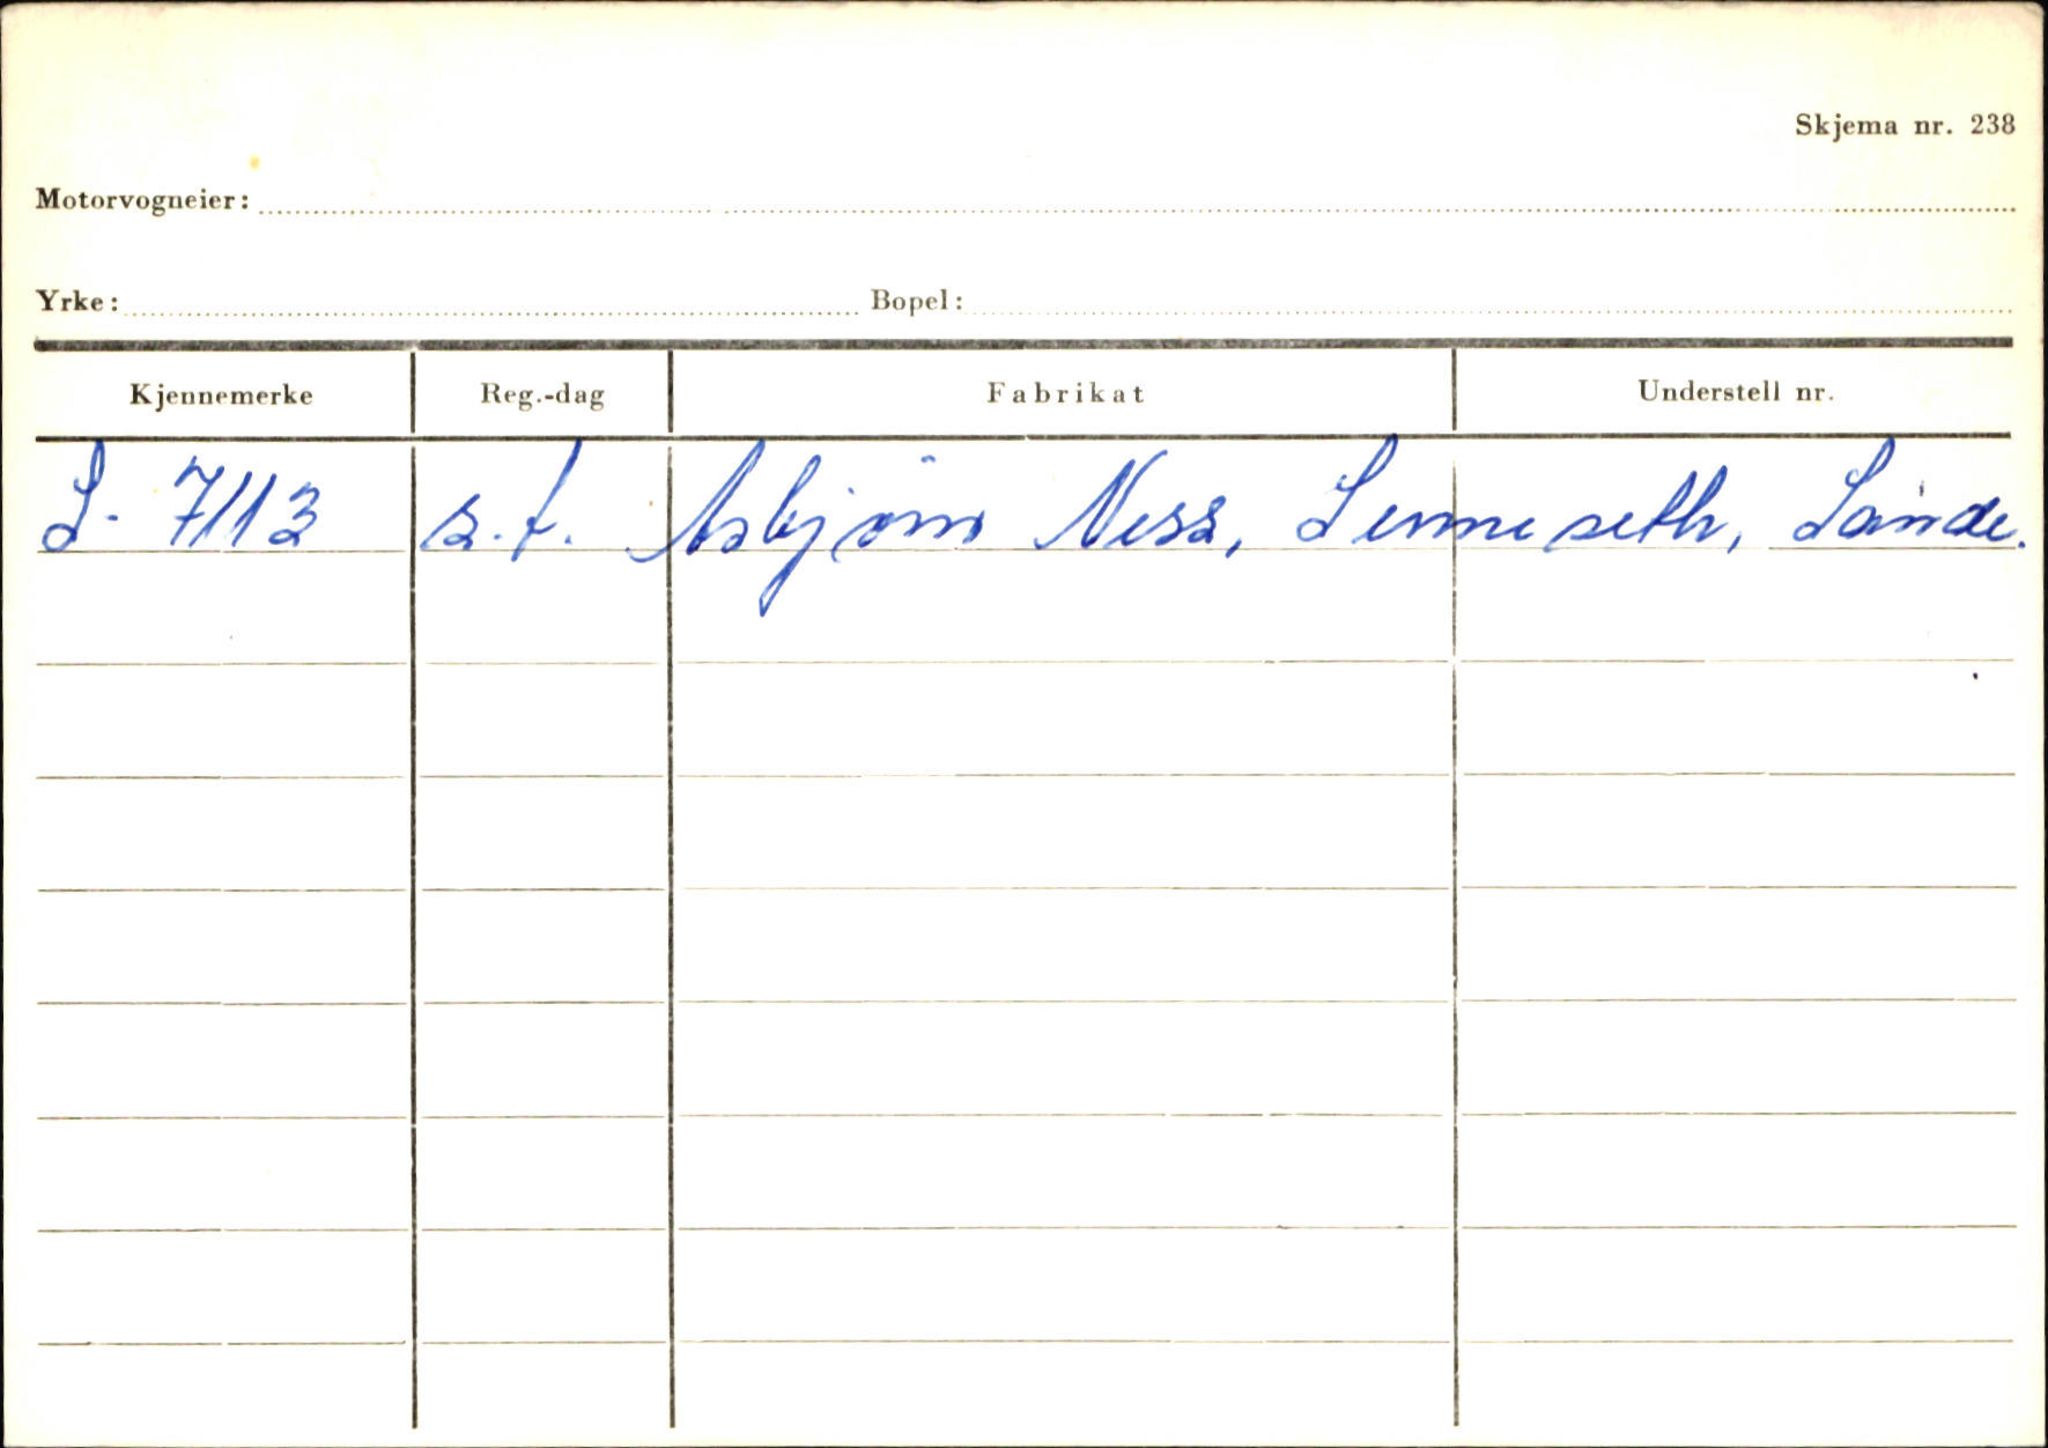 Skjema nr. 238
Motorvogneier:
Yrke: Bopel:
Kjennemerke Reg.-dag Fabrikat Understell nr.
L- 7113 s.f. Asbjörn Ness,